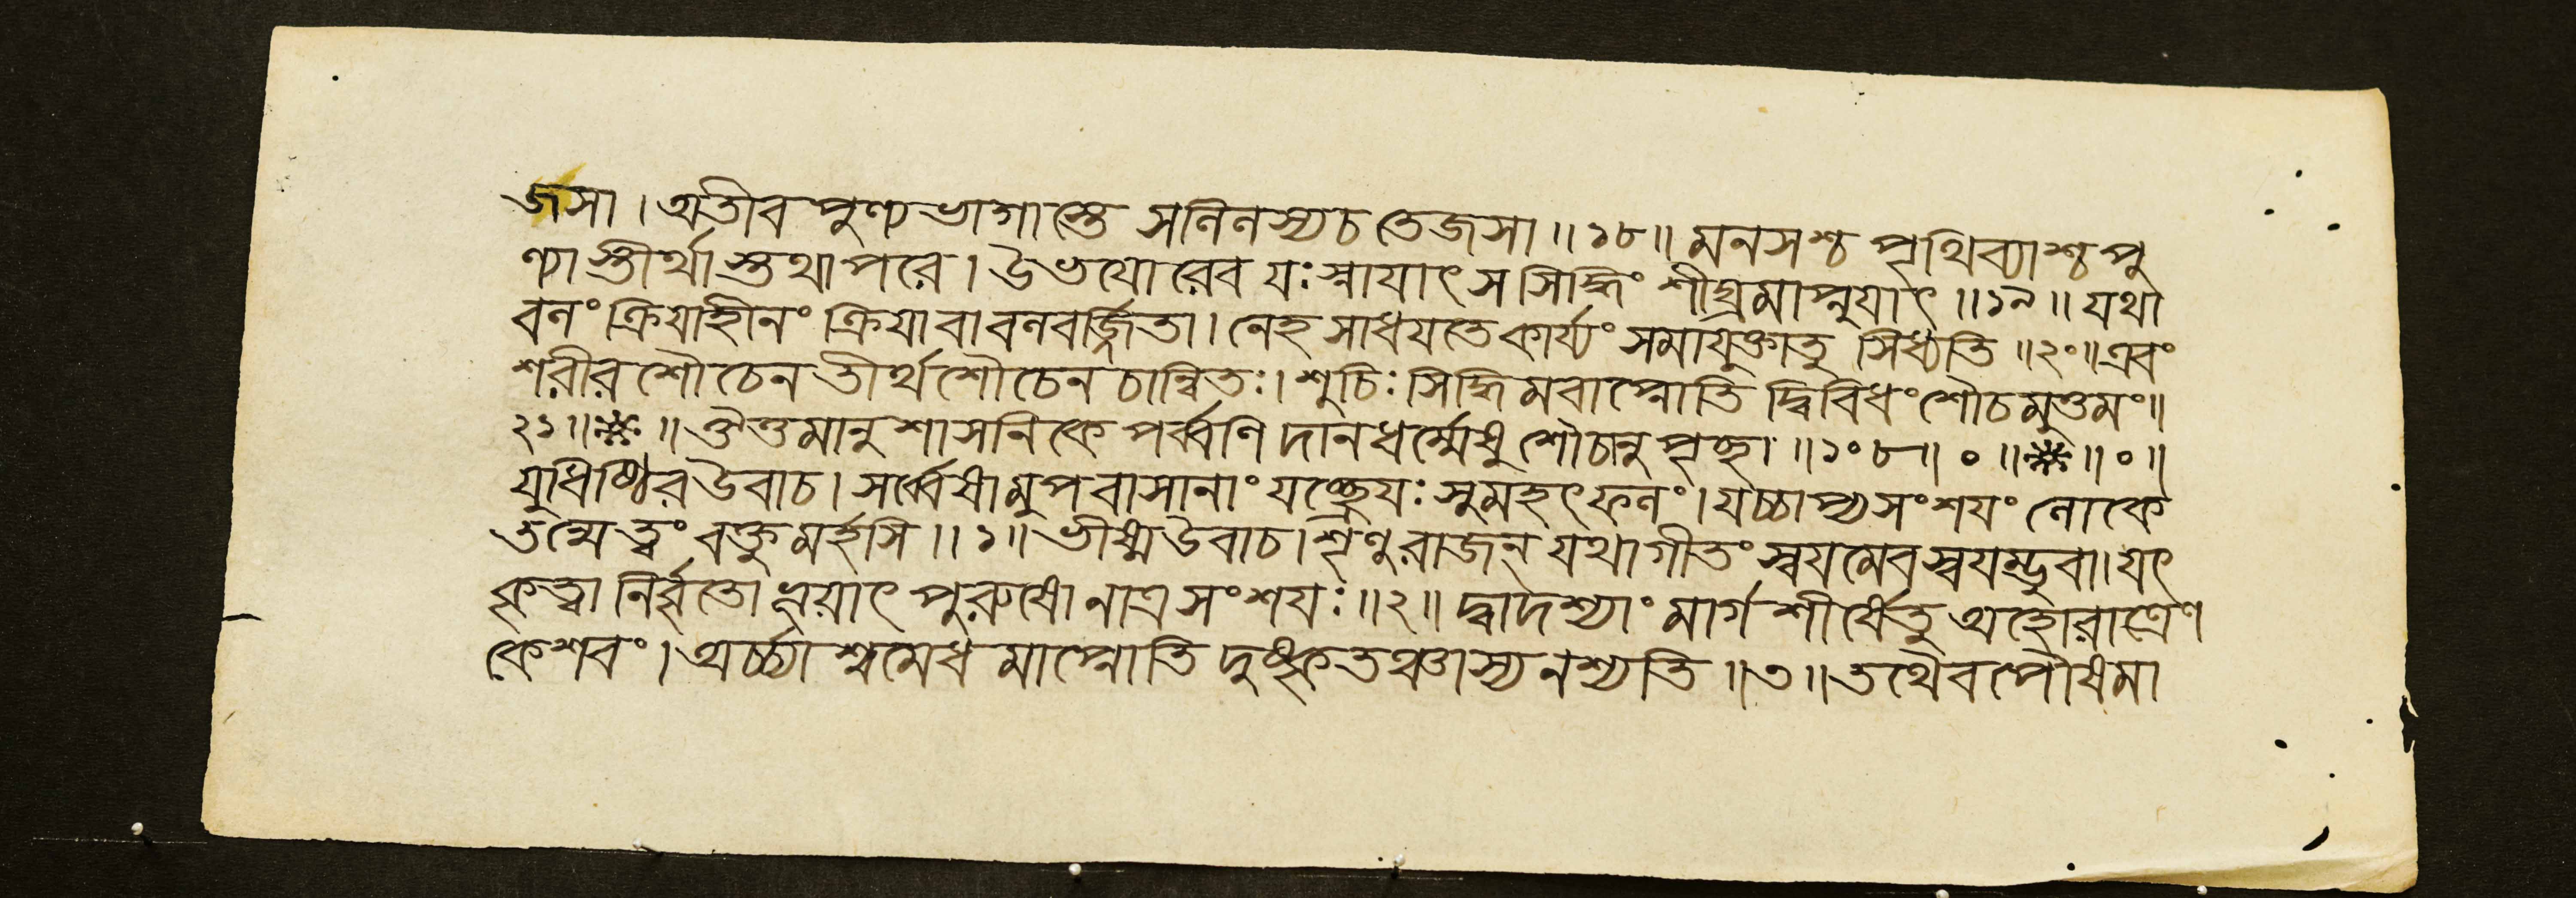 জসা । অতীব পুণ্যভাগাস্তে সলিলস্য চ তেজসা ॥ ১৮ ॥ মনসশ্চ পৃথিব্যাশ্চ পু
ণ্যাস্তীর্থাস্তথাপরে । উভযোরেব যঃ স্নাযাৎ স সিদ্ধিং শীঘ্রমাপ্নুযাৎ ॥ ১৯ ॥ যথা
বলং ক্রিযাহীনং ক্রিযা বা বলবর্জ্জিতা । নেহ সাধযতে কার্য্যং সমাযুক্তা তু সিধ্যতি ॥ ২০ ॥ এবং
শরীরশৌচেন তীর্থশৌচেন চান্বিতঃ । শুচিঃ সিদ্ধিমবাপ্নোতি দ্বিবিধং শৌচমুত্তমং ॥
২১ ॥ ❋ ॥ ঔত্তমানুশাসনিকে পর্ব্বণি দানধর্ম্মেষু শৌচানুপৃচ্ছা ॥ ১০৮ ॥ ০ ॥ ❋ ॥ ০ ॥
যুধিষ্ঠির উবাচ । সর্ব্বেষামুপবাসানাং যচ্ছ্রেযঃ সুমহৎফলং । যচ্চাপ্যসংশযং লোকে
তন্মে ত্বং বক্তুমর্হসি ॥ ১ ॥ ভীষ্ম উবাচ । শৃণু রাজন্ যথা গীতং স্বযমেব স্বযম্ভুবা । যৎ
কৃত্বা নির্বৃতো ভূয়াৎ পুরুষো নাত্র সংশযঃ ॥ ২ ॥ দ্বাদশ্যাং মার্গশীর্ষে তু অহোরাত্রেণ
কেশবং । অর্চ্চ্যাশ্বমেধমাপ্নোতি দুষ্কৃতঞ্চাস্য নশ্যতি ॥ ৩ ॥ তথৈব পৌষমা